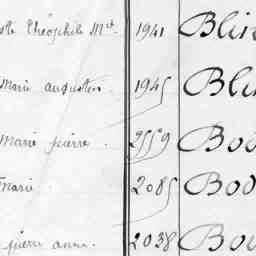 ste Théophile Mie. 1941 Blin
Marie augustin 1945 Blu
Marie pierre. 2559 Bod
Marie. 2085 Bod
pierre anne. 2038 Bou